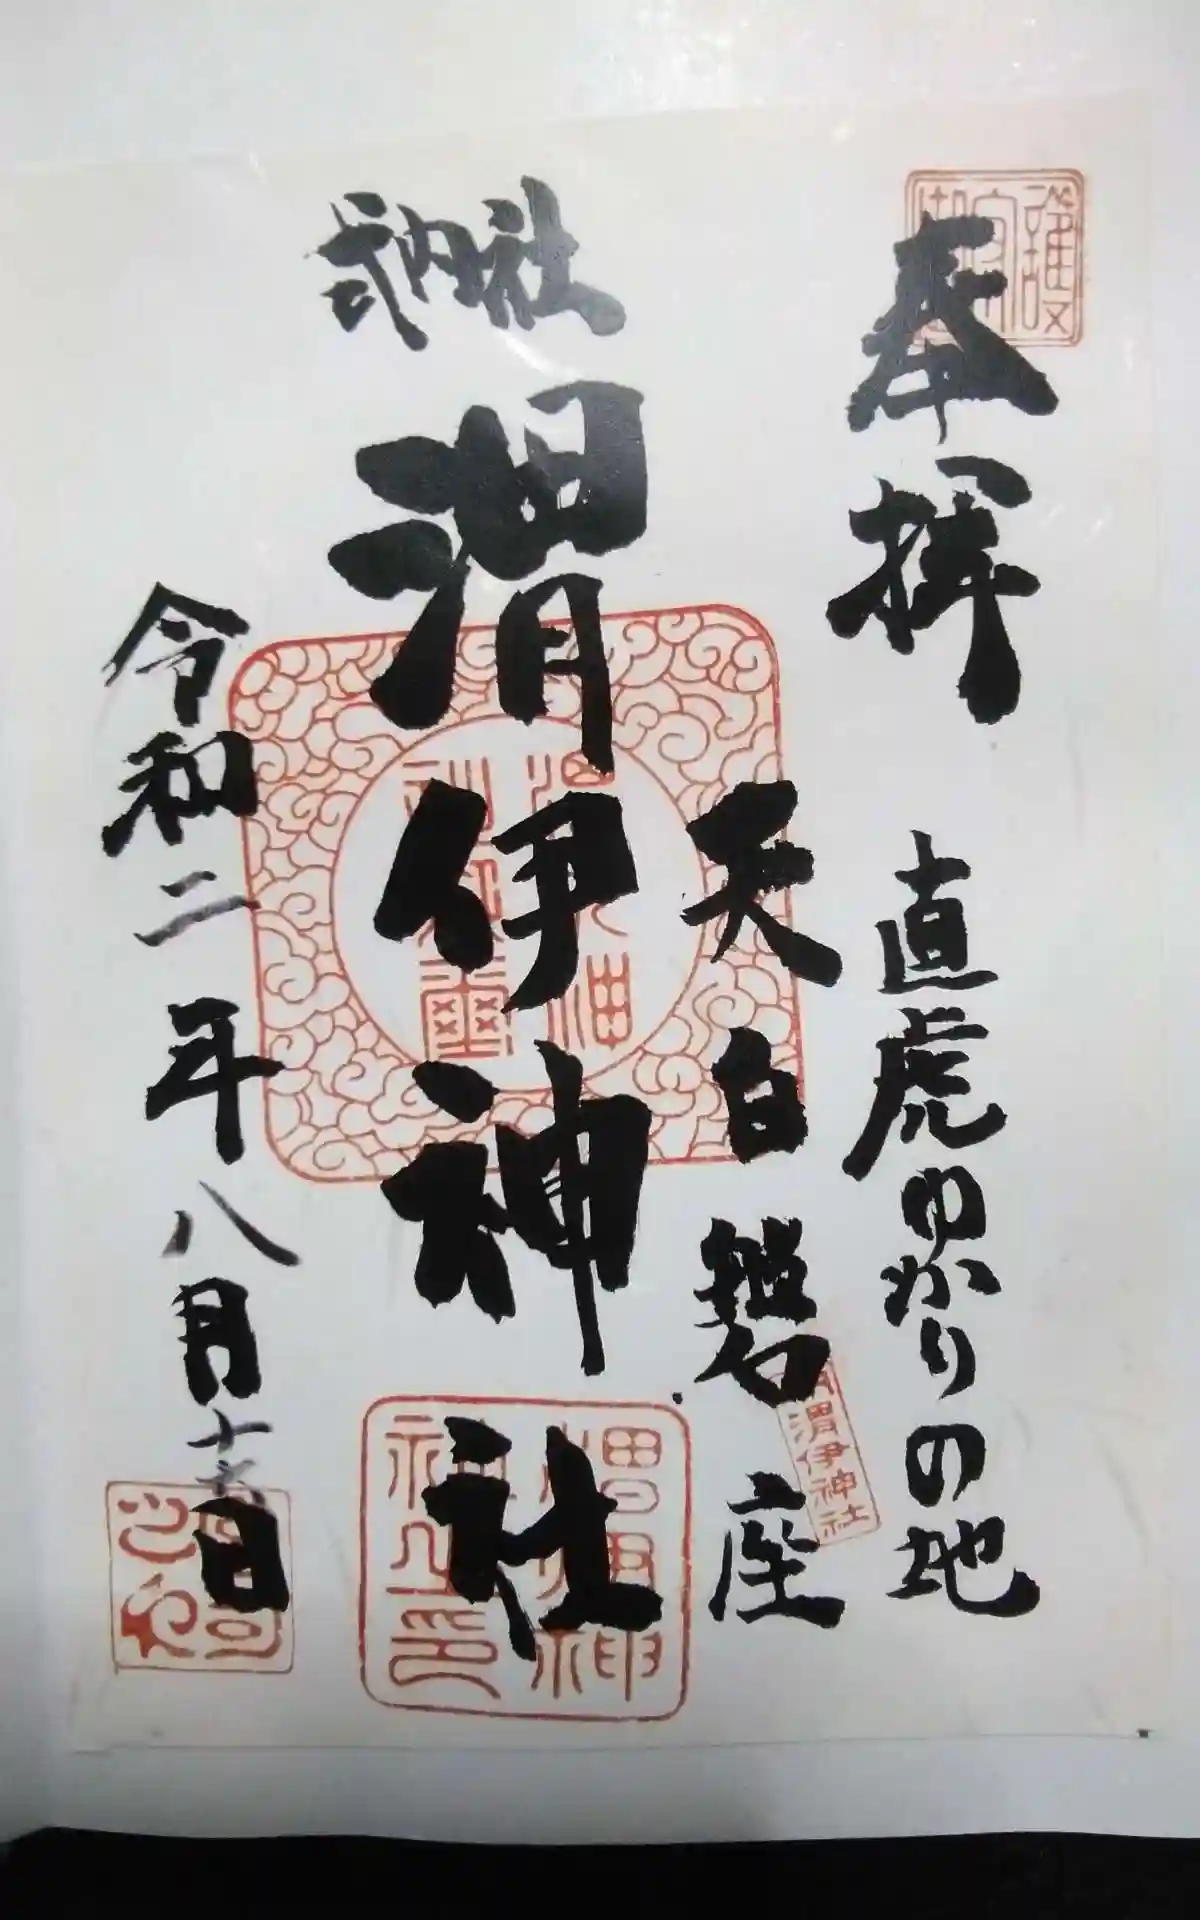 奉拝
直虎ゆかりの地
天白磐座
渭伊神社
式内社
渭伊神社
令和二年八月十六日